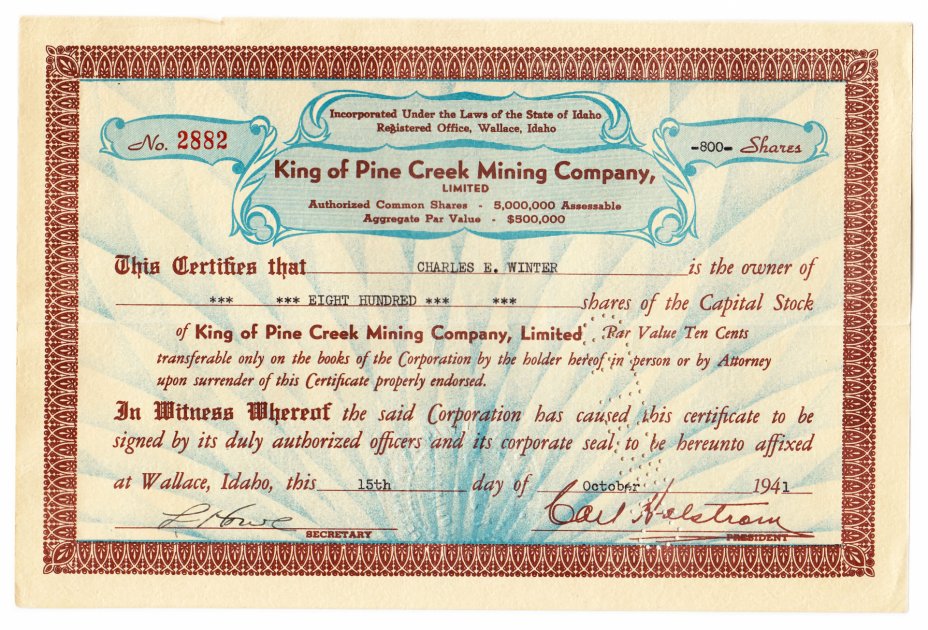 Incorporated Under the Laws of the State of Idaho
Registered Office, Wallace, Idaho
No. 2882
-800- Shares
King of Pine Creek Mining Company,
LIMITED
Authorized Common Shares - 5,000,000 Assessable
Aggregate Par Value - $500,000
This Certifies that CHARLES E. WINTER is the owner of
*** *** EIGHT HUNDRED *** *** shares of the Capital Stock
of King of Pine Creek Mining Company, Limited Par Value Ten Cents
transferable only on the books of the Corporation by the holder hereof in person or by Attorney
upon surrender of this Certificate properly endorsed.
In Witness Whereof the said Corporation has caused this certificate to be
signed by its duly authorized officers and its corporate seal to be hereunto affixed
at Wallace, Idaho, this 15th day of October 1941
L Howe Carl Helstrom
SECRETARY PRESIDENT